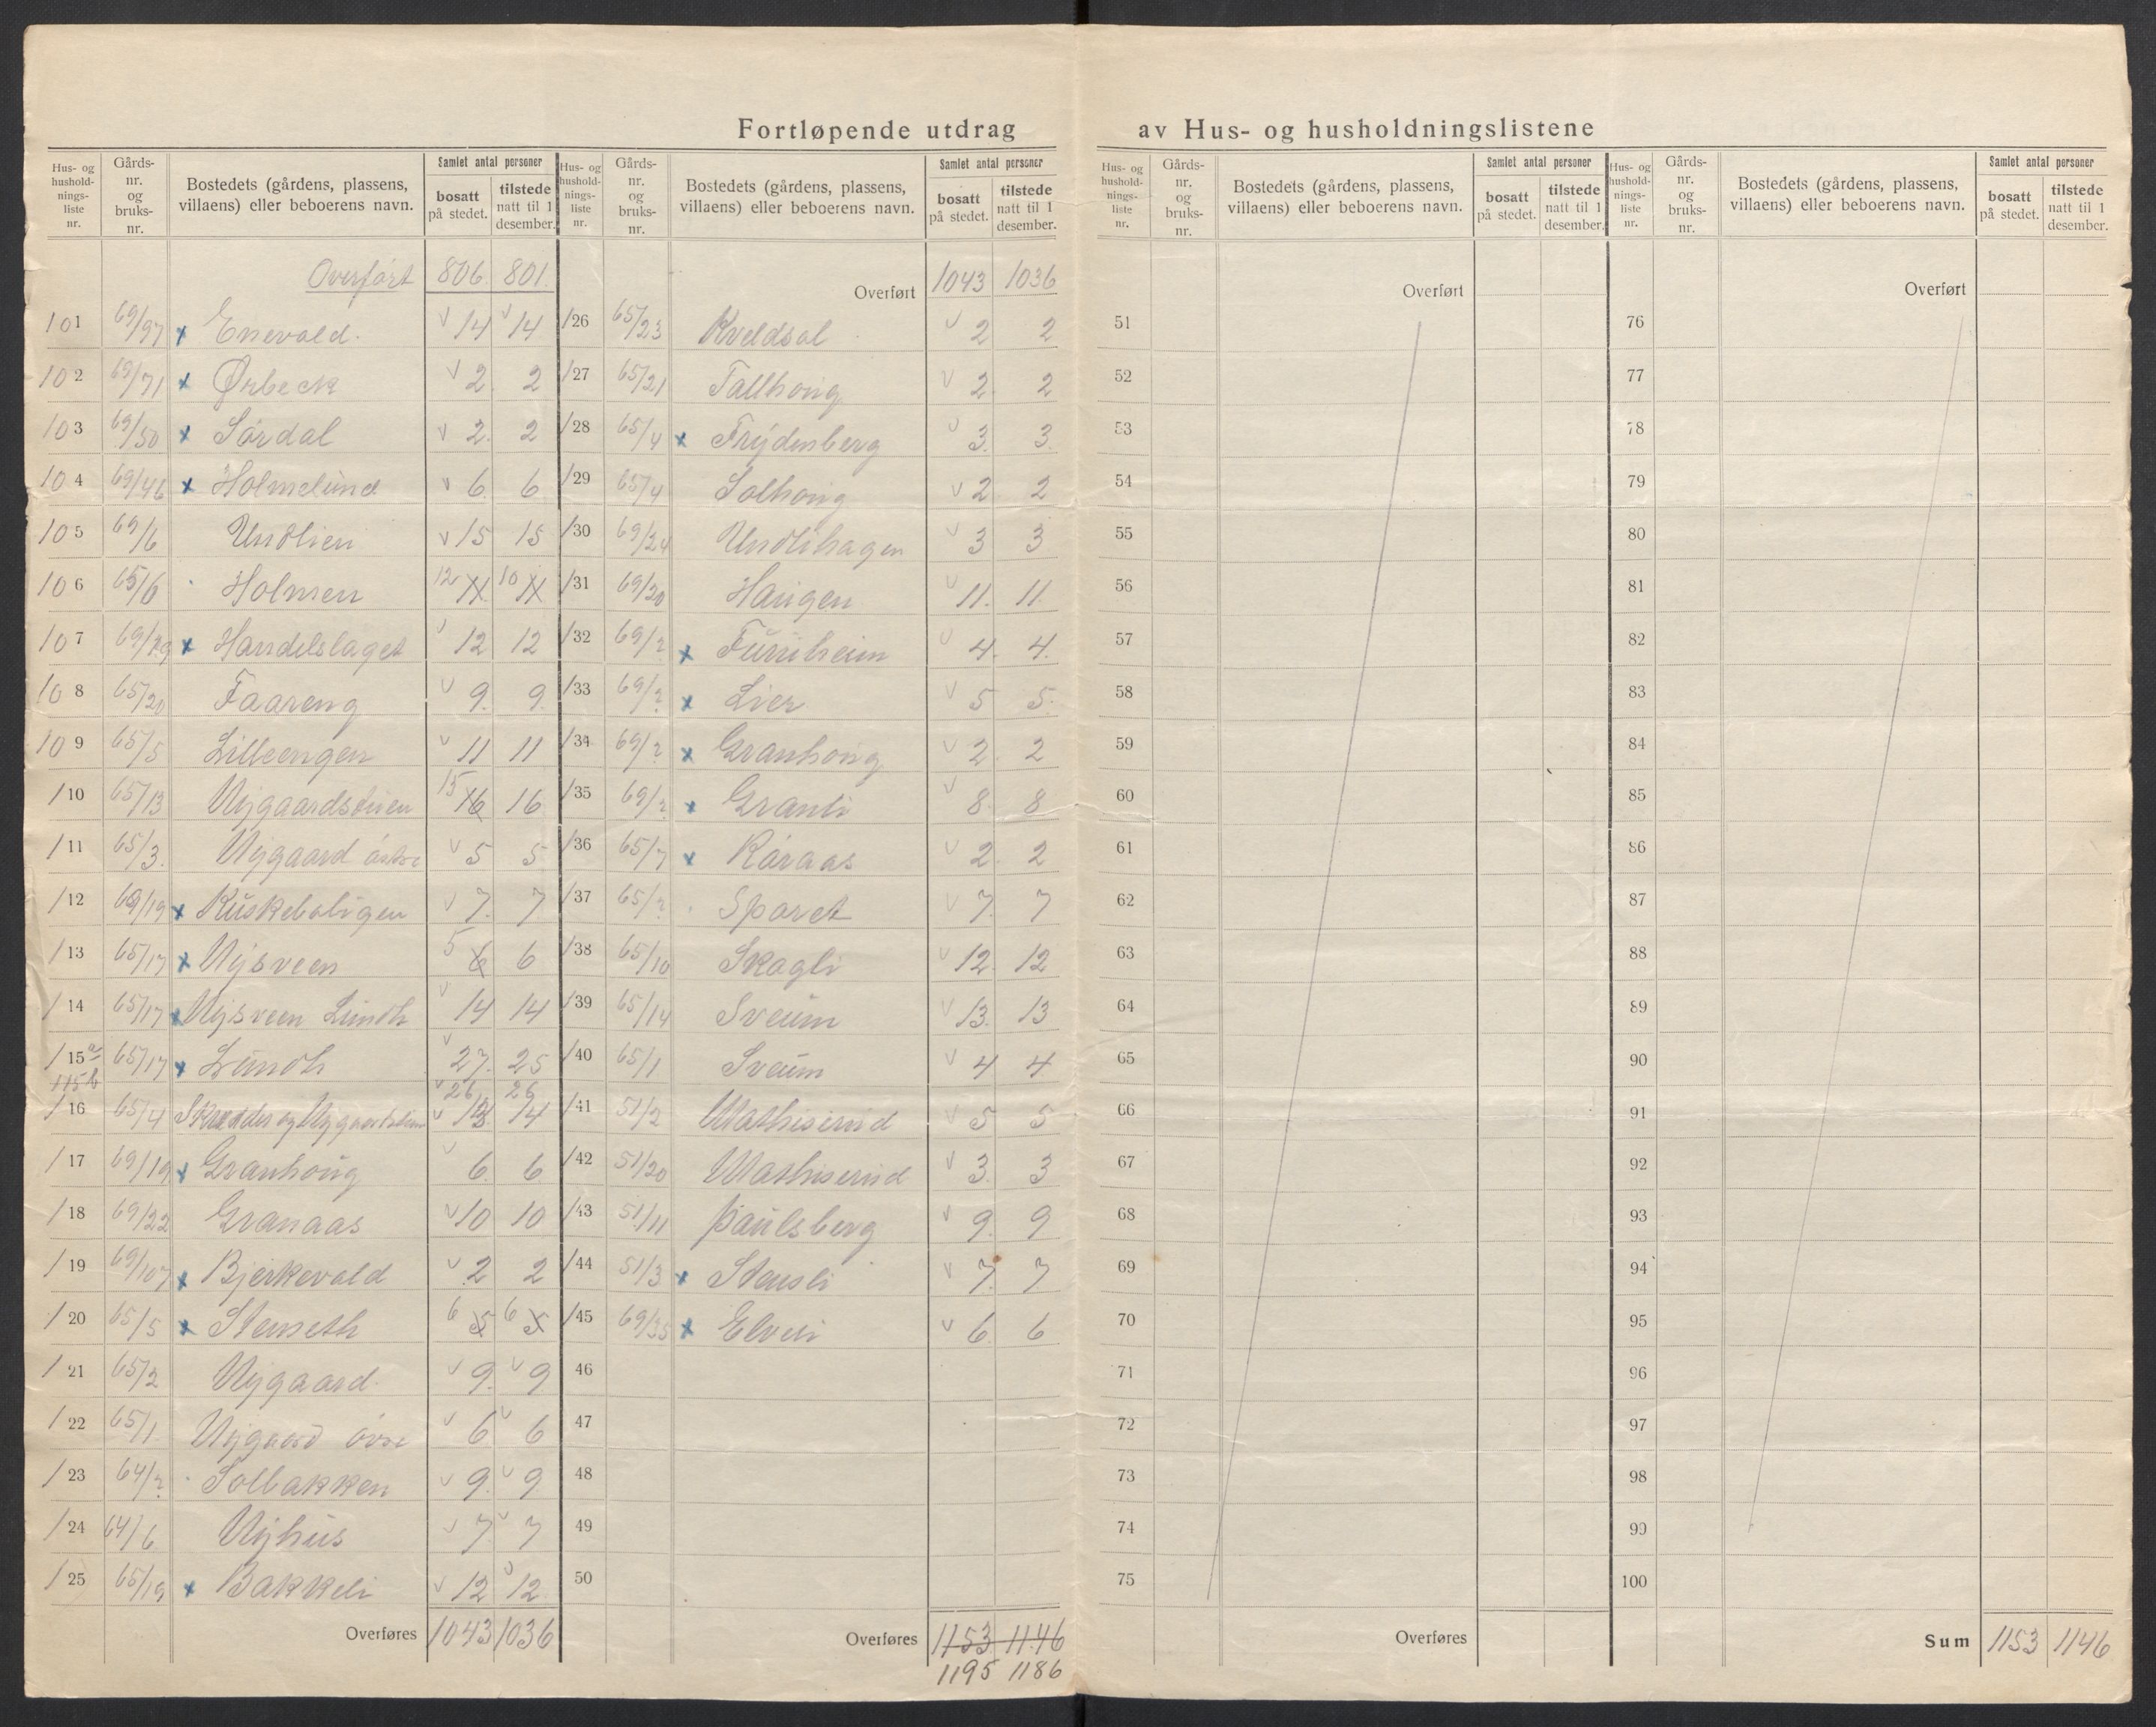 Fortløpende utdrag av Hus- og husholdningslistene
Hus- og husholdningsliste nr. Gårdsnr. og bruksnr. Bostedets (gårdens, plassens, villaens) eller beboerens navn. Samlet antal personer bosatt på stedet. tilstede natt til 1 desember.
Overført 806 801
101 69/97 x Enevald 14 14
102 69/71 x Ørbeck 2 2
103 69/50 x Sørdal 2 2
104 69/46 x Holmelund 6 6
105 69/6 Undlien 15 15
106 65/6 Holmen 12 11 10 11
107 x Handelslaget 12 12
108 65/20 Faareng 9 9
109 65/5 Lilleengen 11 11
110 65/13 15 16 16
111 65/3 Nygaard østre 5 5
112 69/19 x Kuskeboligen 7 7
113 65/17 x Nysveen 5 6 6
114 65/17 x Nysveen Lundh 14 14
115a 65/17 x Lundh 27 25
115b 26 26
116 65/4 14
117 69/19 x Granhoug 6 6
118 69/22 Granaas 10 10
119 69/107 x Bjerkevold 2 2
120 65/5 x Stenseth 6 5 6 5
121 65/2 Nygaard 9 9
122 65/1 Nygaard øvre 6 6
123 64/2 Solbakken 9 9
124 64/6 Nyhus 7 7
125 65/19 x Bakkeli 12 12
Overføres 1043 1036
Hus- og husholdningsliste nr. Gårdsnr. og bruksnr. Bostedets (gårdens, plassens, villaens) eller beboerens navn. Samlet antal personer bosatt på stedet. tilstede natt til 1 desember.
Overført 1043 1036
126 65/23 Kveldsol 2 2
127 65/21 Tallhoug 2 2
128 65/4 x Frydenberg 3 3
129 65/4 Solhoug 2 2
130 69/24 Undlihagen 3 3
131 69/20 Haugen 11 11
132 69/? x Furuheim 4 4
133 69/? x Lier 5 5
134 69/? x Granhoug 2 2
135 69/? x Granli 8 8
136 65/7 x Røraas 2 2
137 65/? Sporet 7 7
138 65/10 Skagli 12 12
139 65/14 Sveum 13 13
140 65/1 Sveum 4 4
141 51/2 Mathiserud 5 5
142 51/20 Mathiserud 3 3
143 51/11 Paulsberg 9 9
144 51/3 x Stensli 7 7
145 69/35 x Elveli 6 6
46
47
48
49
50
Overføres 1153 1146
1195 1186
Hus- og husholdningsliste nr. Gårdsnr. og bruksnr. Bostedets (gårdens, plassens, villaens) eller beboerens navn. Samlet antal personer bosatt på stedet. tilstede natt til 1 desember.
Overført
51
52
53
54
55
56
57
58
59
60
61
62
63
64
65
66
67
68
69
70
71
72
73
74
75
Overføres
Hus- og husholdningsliste nr. Gårdsnr. og bruksnr. Bostedets (gårdens, plassens, villaens) eller beboerens navn. Samlet antal personer bosatt på stedet. tilstede natt til 1 desember.
Overført
76
77
78
79
80
81
82
83
84
85
86
87
88
89
90
91
92
93
94
95
96
97
98
99
100
Sum 1153 1146